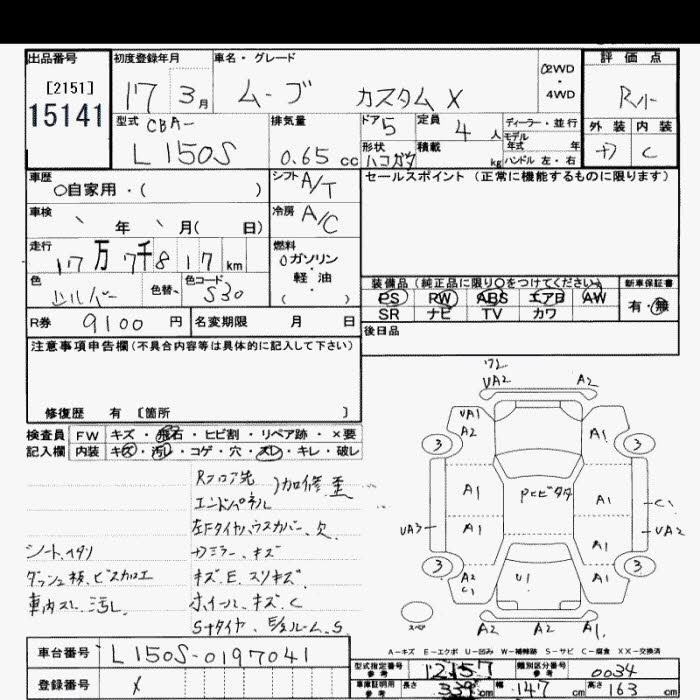 出品番号 初度登録年月 車名・グレード 評価点
[2151] 17 3月 ムーブ カスタム X 2WD・4WD R小
15141
型式 CBA- 排気量 ドア 定員 ディーラー・並行 外装 内装
L150S 0.65 cc 5 4人 モデル年式 年 C
形状 積載 ハコガタ kg ハンドル 左・右
車歴 ○自家用・( ) シフト A/T セールスポイント(正常に機能するものに限ります)
車検 年 月( 日) 冷房 A/C
走行 17万7千817km 燃料 ガソリン・軽油 ( )
色 シルバー 色替 色コード S30
装備品(純正品に限り○をつけてください) 新車保証書
PS PW ABS エアB AW 有・無
SR ナビ TV カワ
R券 9100円 名変期限 月 日 後日品
注意事項申告欄(不具合内容等は具体的に記入して下さい)
修復歴 有 〔箇所 〕
検査員 FW キズ・飛石・ヒビ割・リペア跡・×要
記入欄 内装 キズ・汚れ・コゲ・穴・スレ・キレ・破レ
Rフロア先
エンドパネル 加修歪
左Fタイヤハウスカバー、欠
シートヘタリ ミラー、キズ
ダッシュ板、ビスカロエ キズ、E、スリキズ
車内スレ、汚レ ホイール、キズ、C
Sナタイヤ、 ルーム、S
72
UA2 A2
UA1
A2 A1
3 3
A1 Pセビタタ A1 C1
UA3 A1 A1 UA2
3 3
A2 U1 A1
C1
スペア A2 A2 A2
A-キズ E-エクボ U-凹み W-補修跡 S-サビ C-腐食 XX-交換済
車台番号 L150S-0197041
登録番号 X
型式指定番号 参考 12157 類別区分番号 参考 0034
車庫証明用 参考 長さ 339cm 幅 147cm 高さ 163cm